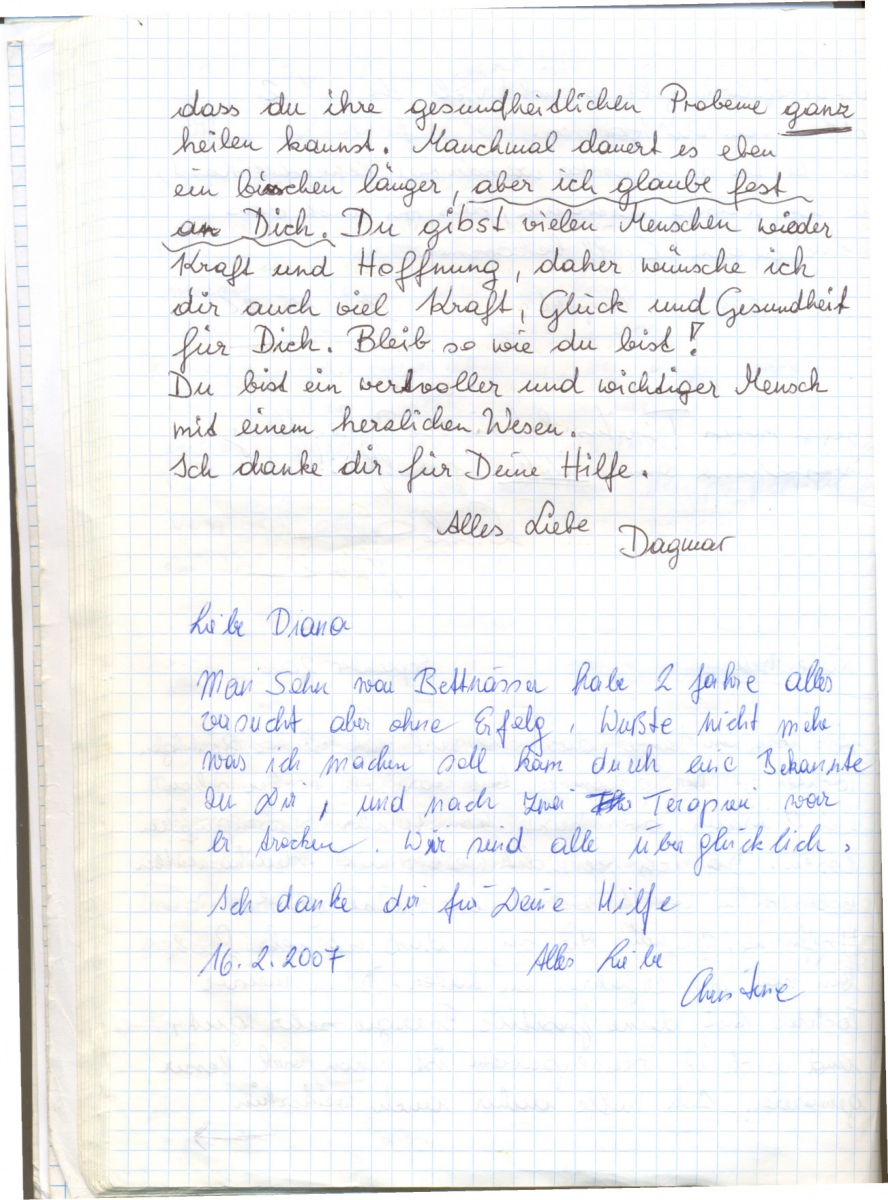 dass du ihre gesundheitlichen Probeme ganz
heilen kannst. Manchmal dauert es eben
ein bischen länger, aber ich glaube fest
an Dich. Du gibst vielen Menschen wieder
Kraft und Hoffnung, daher wünsche ich
dir auch viel Kraft, Glück und Gesundheit
für Dich. Bleib so wie du bist!
Du bist ein wertvoller und wichtiger Mensch
mit einem herzlichen Wesen.
Ich danke dir für Deine Hilfe.
Alles Liebe Dagmar
Liebe Diana
Mein Sohn war Bettnässer habe 2 Jahre alles
versucht aber ohne Erfolg, Wußte nicht mehr
was ich machen soll kam durch eine Bekannte
zu Dir, und nach zwei Terapien war
er trocken. Wir sind alle überglücklich.
Ich danke dir für Deine Hilfe
16.2.2007 Alles Liebe
Christine